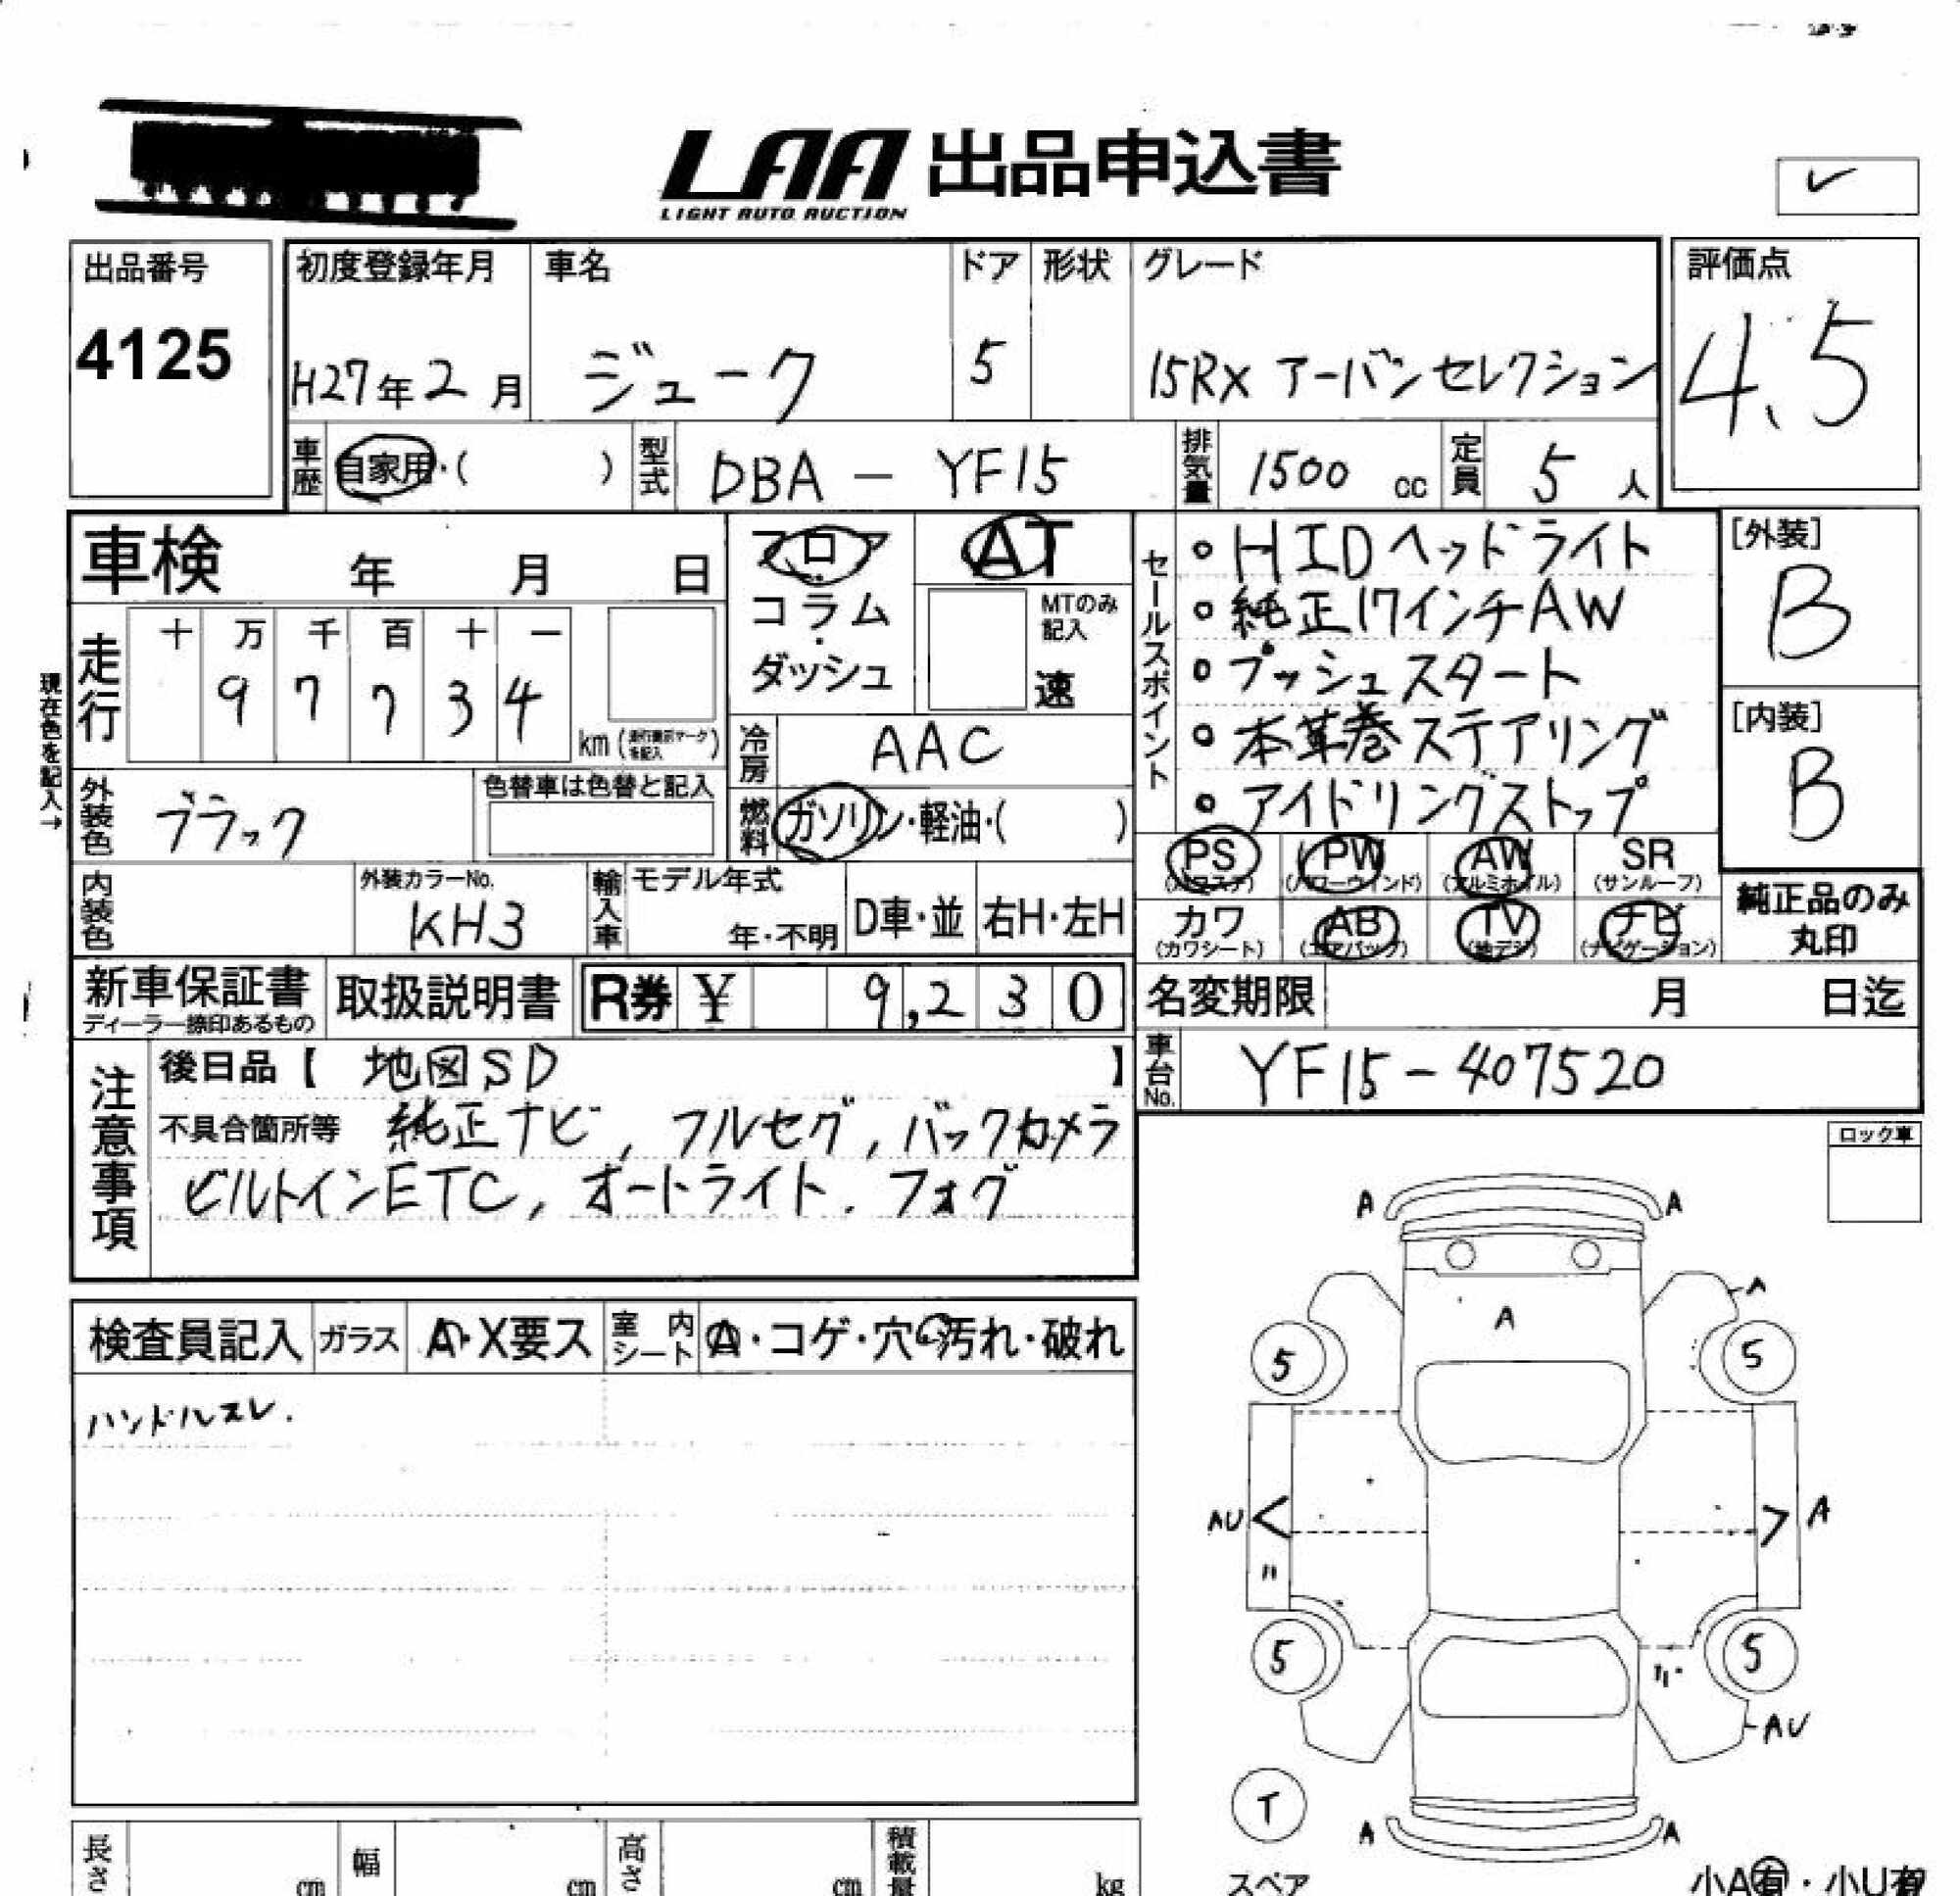 LAA 出品申込書
LIGHT AUTO AUCTION
出品番号
4125
初度登録年月
H27年2月
車名
ジューク
ドア
5
形状
グレード
15RX アーバンセレクション
評価点
4.5
車歴
自家用・( )
型式
DBA - YF15
排気量
1500 cc
定員
5 人
車検 年 月 日
現在色を記入→
走行
十 万 千 百 十 一
9 7 7 3 4
km
フロア
コラム
・
ダッシュ
AT
MTのみ
記入
速
冷房
AAC
燃料
ガソリン・軽油・( )
外装色
ブラック
色替車は色替と記入
内装色
外装カラーNo.
KH3
輸入車
モデル年式
年・不明
D車・並
右H・左H
セールスポイント
・HIDヘッドライト
・純正17インチAW
・プッシュスタート
・本革巻ステアリング
・アイドリングストップ
[外装]
B
[内装]
B
PS PW AW SR
(パワステ) (パワーウインド) (アルミホイル) (サンルーフ)
カワ AB TV ナビ
(カワシート) (エアバッグ) (地デジ) (ナビゲーション)
純正品のみ
丸印
新車保証書
ディーラー捺印あるもの
取扱説明書
R券 ¥ 9,230
名変期限 月 日迄
車台No.
YF15-407520
注意事項
後日品【 地図SD 】
不具合箇所等 純正ナビ, フルセグ, バックカメラ
ビルトインETC, オートライト. フォグ
ロック車
検査員記入
ガラス
A・X要ス
室内シート
A・コゲ・穴・汚れ・破れ
ハンドルスレ.
A A
A
A
5 5
AU A
〃
5 5
AU
T
A A
スペア
小A有・小U有
長さ cm
幅 cm
高さ cm
積載量 kg